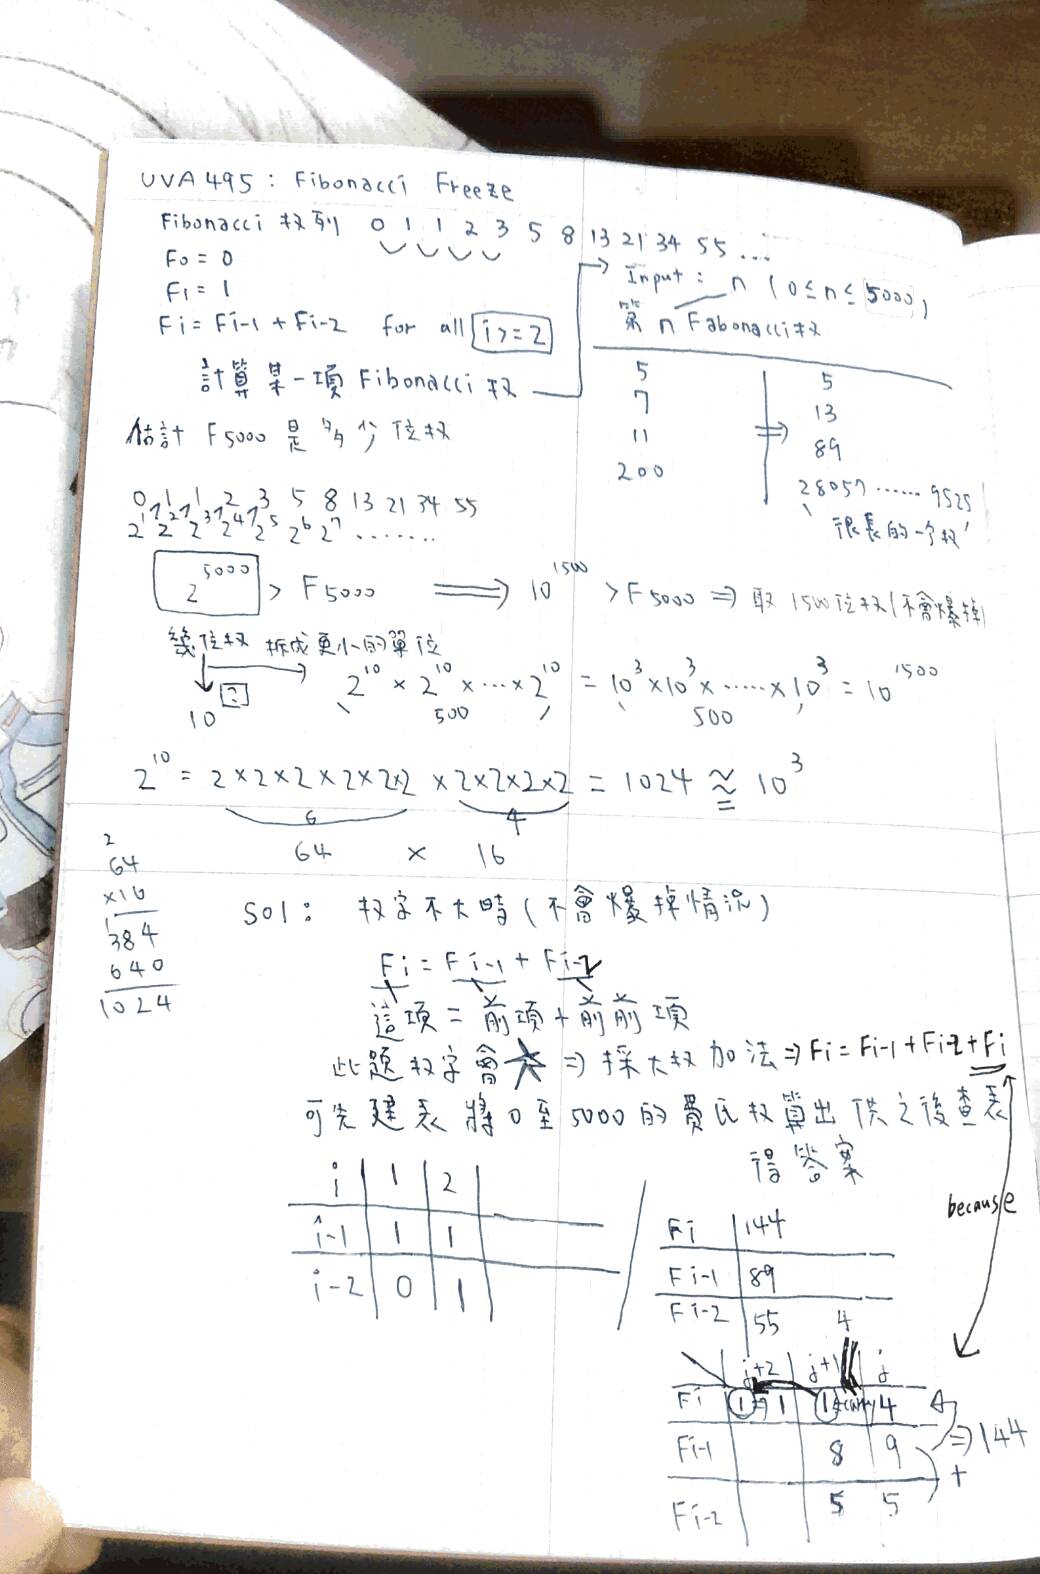 UVA495 : Fibonacci Freeze
Fibonacci 数列 0 1 1 2 3 5 8 13 21 34 55 ...
F0 = 0
F1 = 1
Fi = Fi-1 + Fi-2 for all i>=2
計算某一項 Fibonacci 数
Input : n (0≤n≤5000)
第 n Fabonacci 数
5 ⇒ 5
7 13
11 89
200 28057......9525
很長的一个数
估計 F5000 是多少位数
0 1 1 2 3 5 8 13 21 34 55
2^1 2^2 2^3 2^4 2^5 2^6 2^7 ........
2^5000 > F5000 ⟹ 10^1500 > F5000 ⇒ 取 1500 位数(不會爆掉)
幾位数 拆成更小的單位
10^?
2^10 × 2^10 × ... × 2^10 = 10^3 × 10^3 × ..... × 10^3 = 10^1500
500 500
2^10 = 2×2×2×2×2×2 × 2×2×2×2 = 1024 ≈ 10^3
6 4
64 × 16
2
64
×16
1
384
640
1024
Sol : 数字不大時(不會爆掉情況)
Fi = Fi-1 + Fi-2
這項 = 前項 + 前前項
此題数字會大 ⇒ 採大数加法 ⇒ Fi = Fi-1 + Fi-2 + Fi
可先建表 將 0 至 5000 的費氏数算出 供之後查表
得答案
because
i 1 2
i-1 1 1
i-2 0 1
Fi 144
Fi-1 89
Fi-2 55 4
j+2 j+1 j
Fi 1 ⇒ 1 1 carry 4
Fi-1 8 9 ⇒ 144
+
Fi-2 5 5